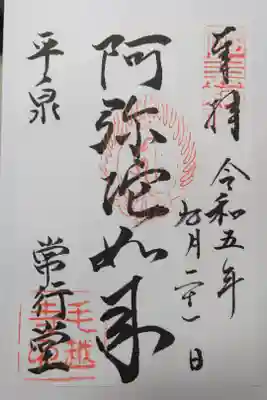 奉拝
令和五年
月二十一日
阿弥陀如来
平泉
常行堂
毛越